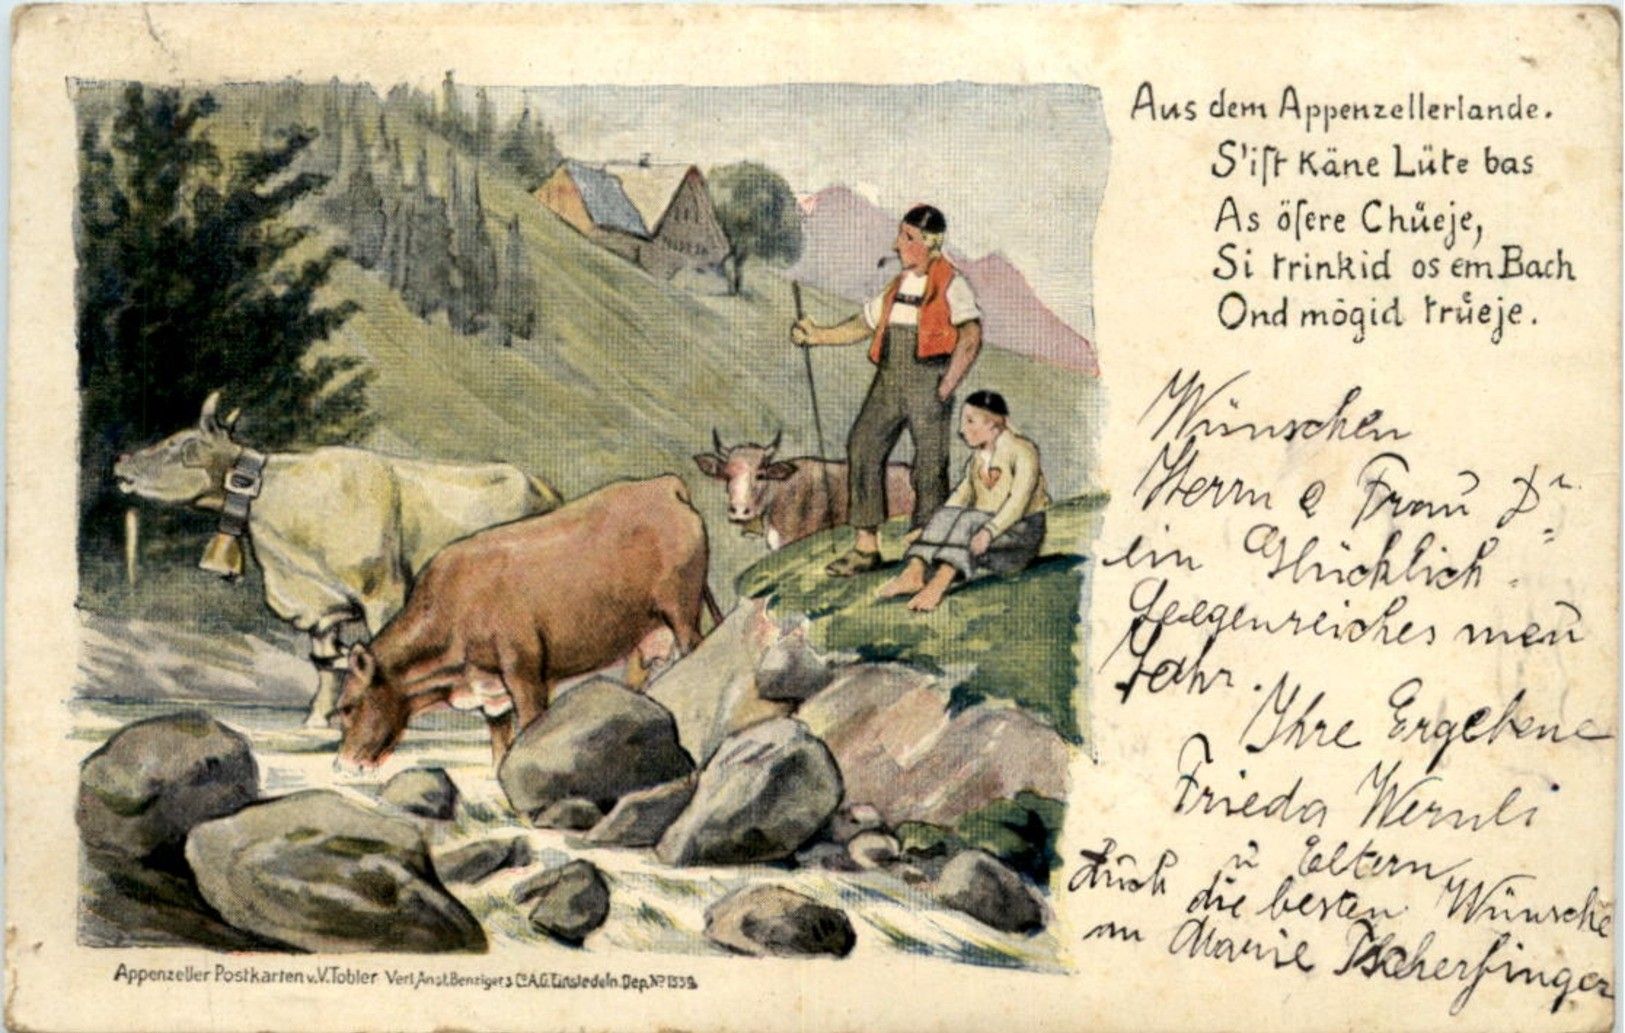 Aus dem Appenzellerlande.
S'iſt käne Lüte bas
As öſere Chüeje,
Si trinkid os em Bach
Ond mögid trüeje.
Wünschen
Herrn & Frau Dr
ein Glücklich
Seegenreiches neu
Jahr.
Ihre Ergebene
Frieda Wernli
u Eltern
Auch die besten Wünsche
an Marie Tscherfinger
Appenzeller Postkarten v. V. Tobler Verl. Anst. Benziger & Co A.G. Einsiedeln. Dep. No 1339.